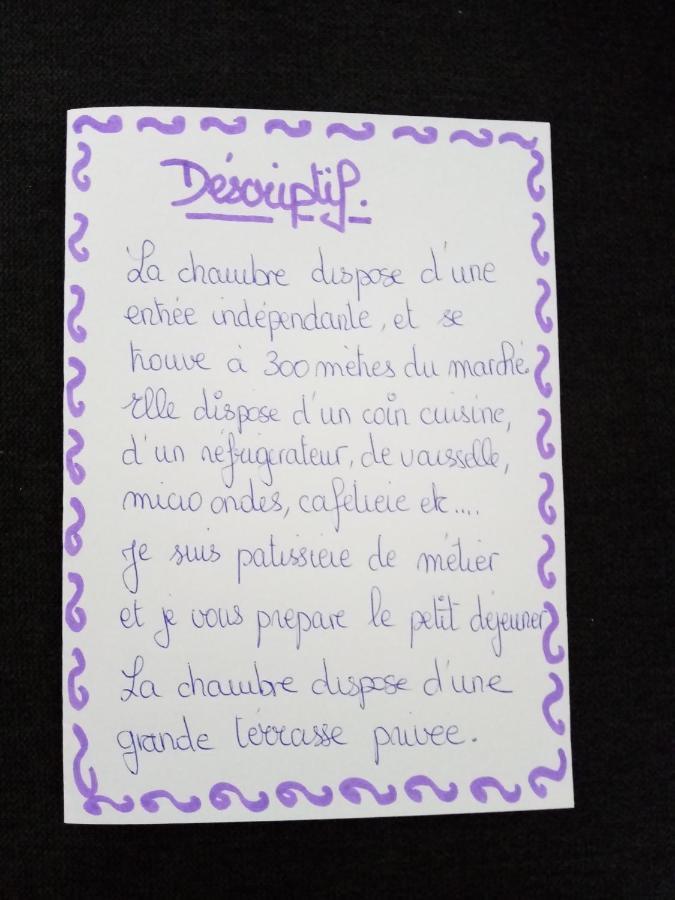 Déscriptif.
La chambre dispose d'une
entrée indépendante, et se
trouve à 300 mètres du marché.
Elle dispose d'un coin cuisine,
d'un réfrigérateur, de vaisselle,
micro ondes, cafetière etc....
Je suis patissière de métier
et je vous prepare le petit déjeuner
La chambre dispose d'une
grande térrasse privee.